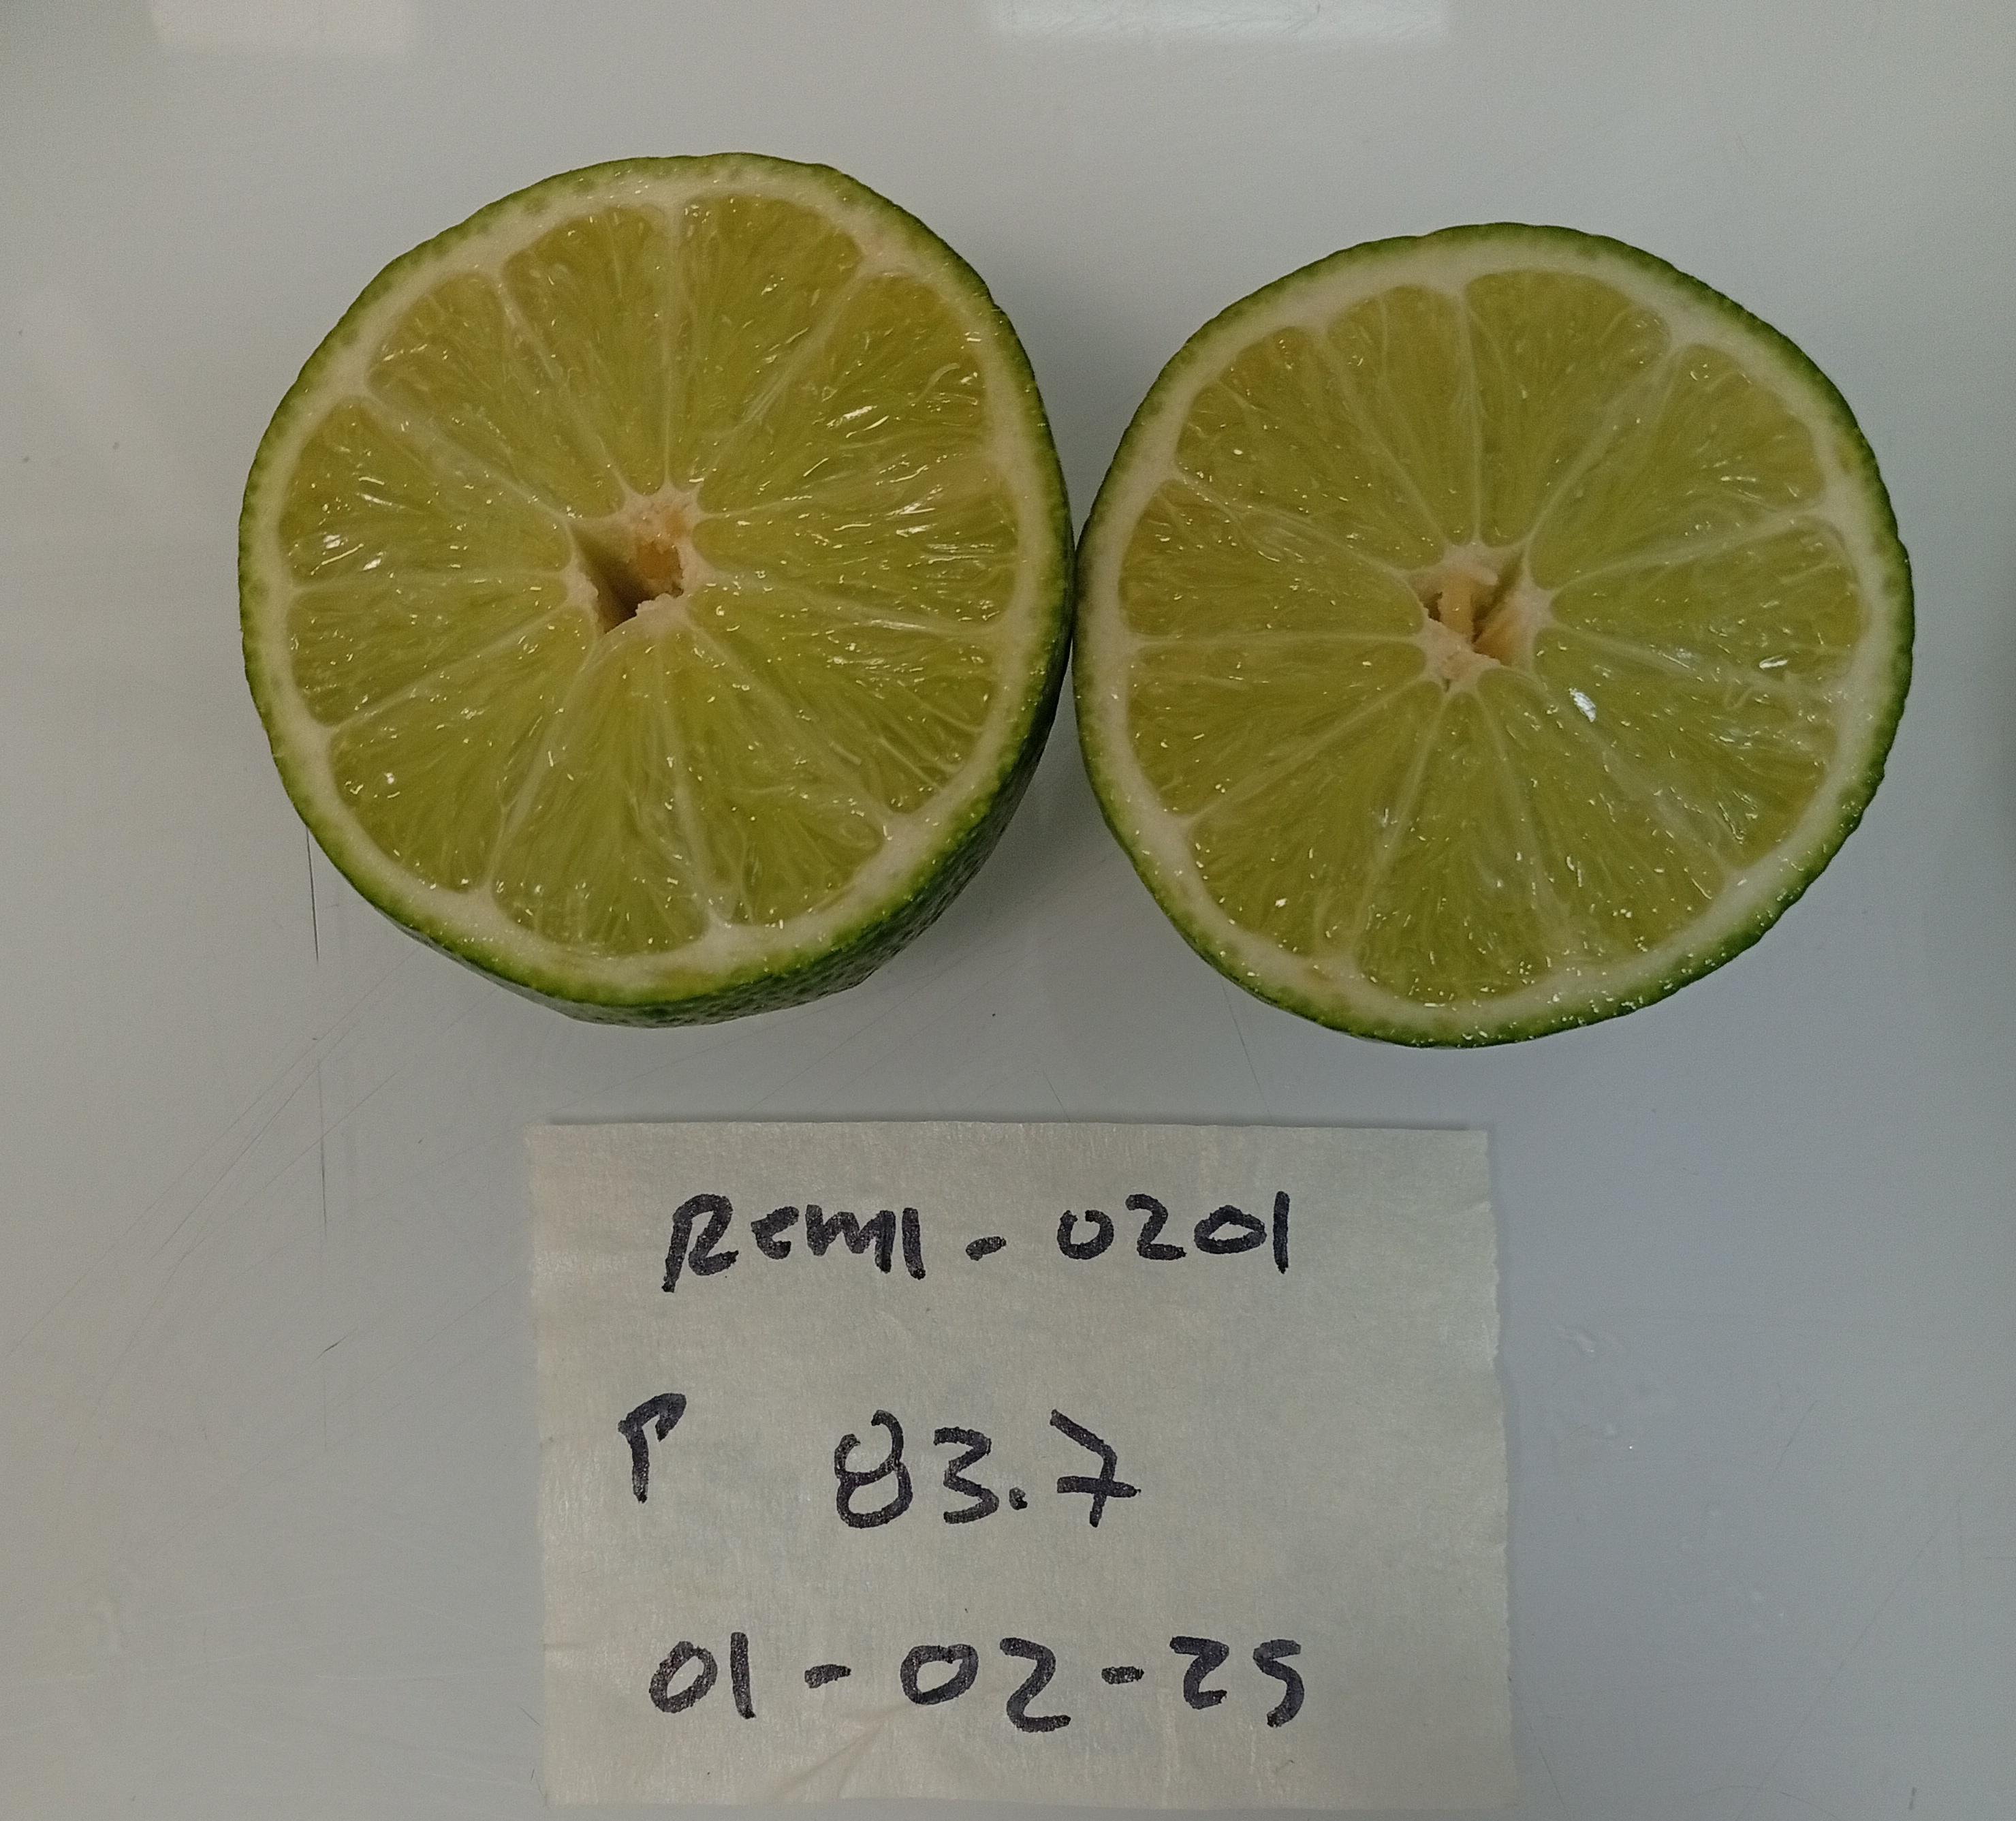 Rem1-0201
P 83.7
01-02-25